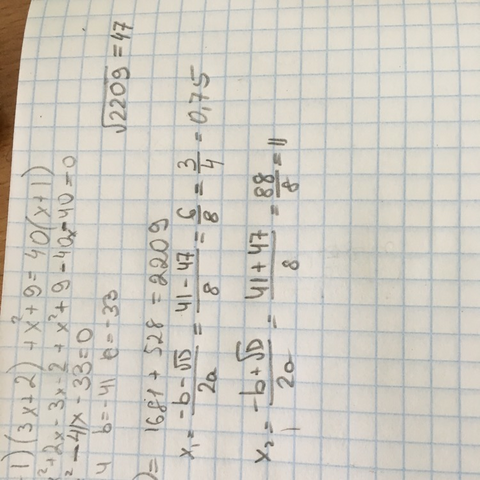 -1)(3x+2)+x²+9=40(x+1)
x²+2x-3x-2+x²+9-40x-40=0
x²-41x-33=0
4 b=-41 c=-33
)= 1681+528=2209
√2209=47
x₁=(-b-√D)/2a=(41-47)/8=6/8=3/4=0,75
x₂=(-b+√D)/2a=(41+47)/8=88/8=11